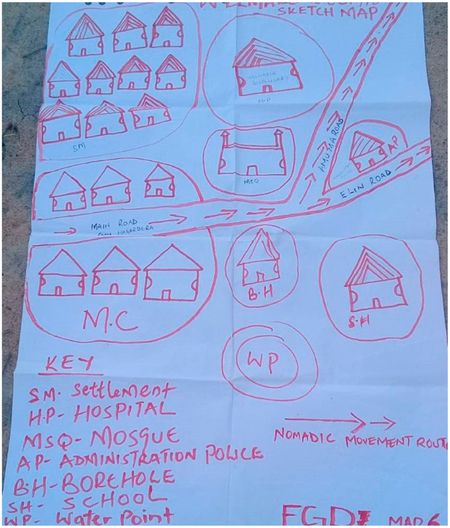 SKETCH MAP
SM
HP
MSQ
AMUMA ROAD
AP
ELIN ROAD
MAIN ROAD
FROM HAGARDERA
B.H
S.H
M.C
WP
KEY
SM- Settlement
HP- HOSPITAL
MSQ- MOSQUE
AP- ADMINISTRATION POLICE
BH- BOREHOLE
SH- SCHOOL
WP- Water Point
NOMADIC MOVEMENT ROUT
FGD
MAP